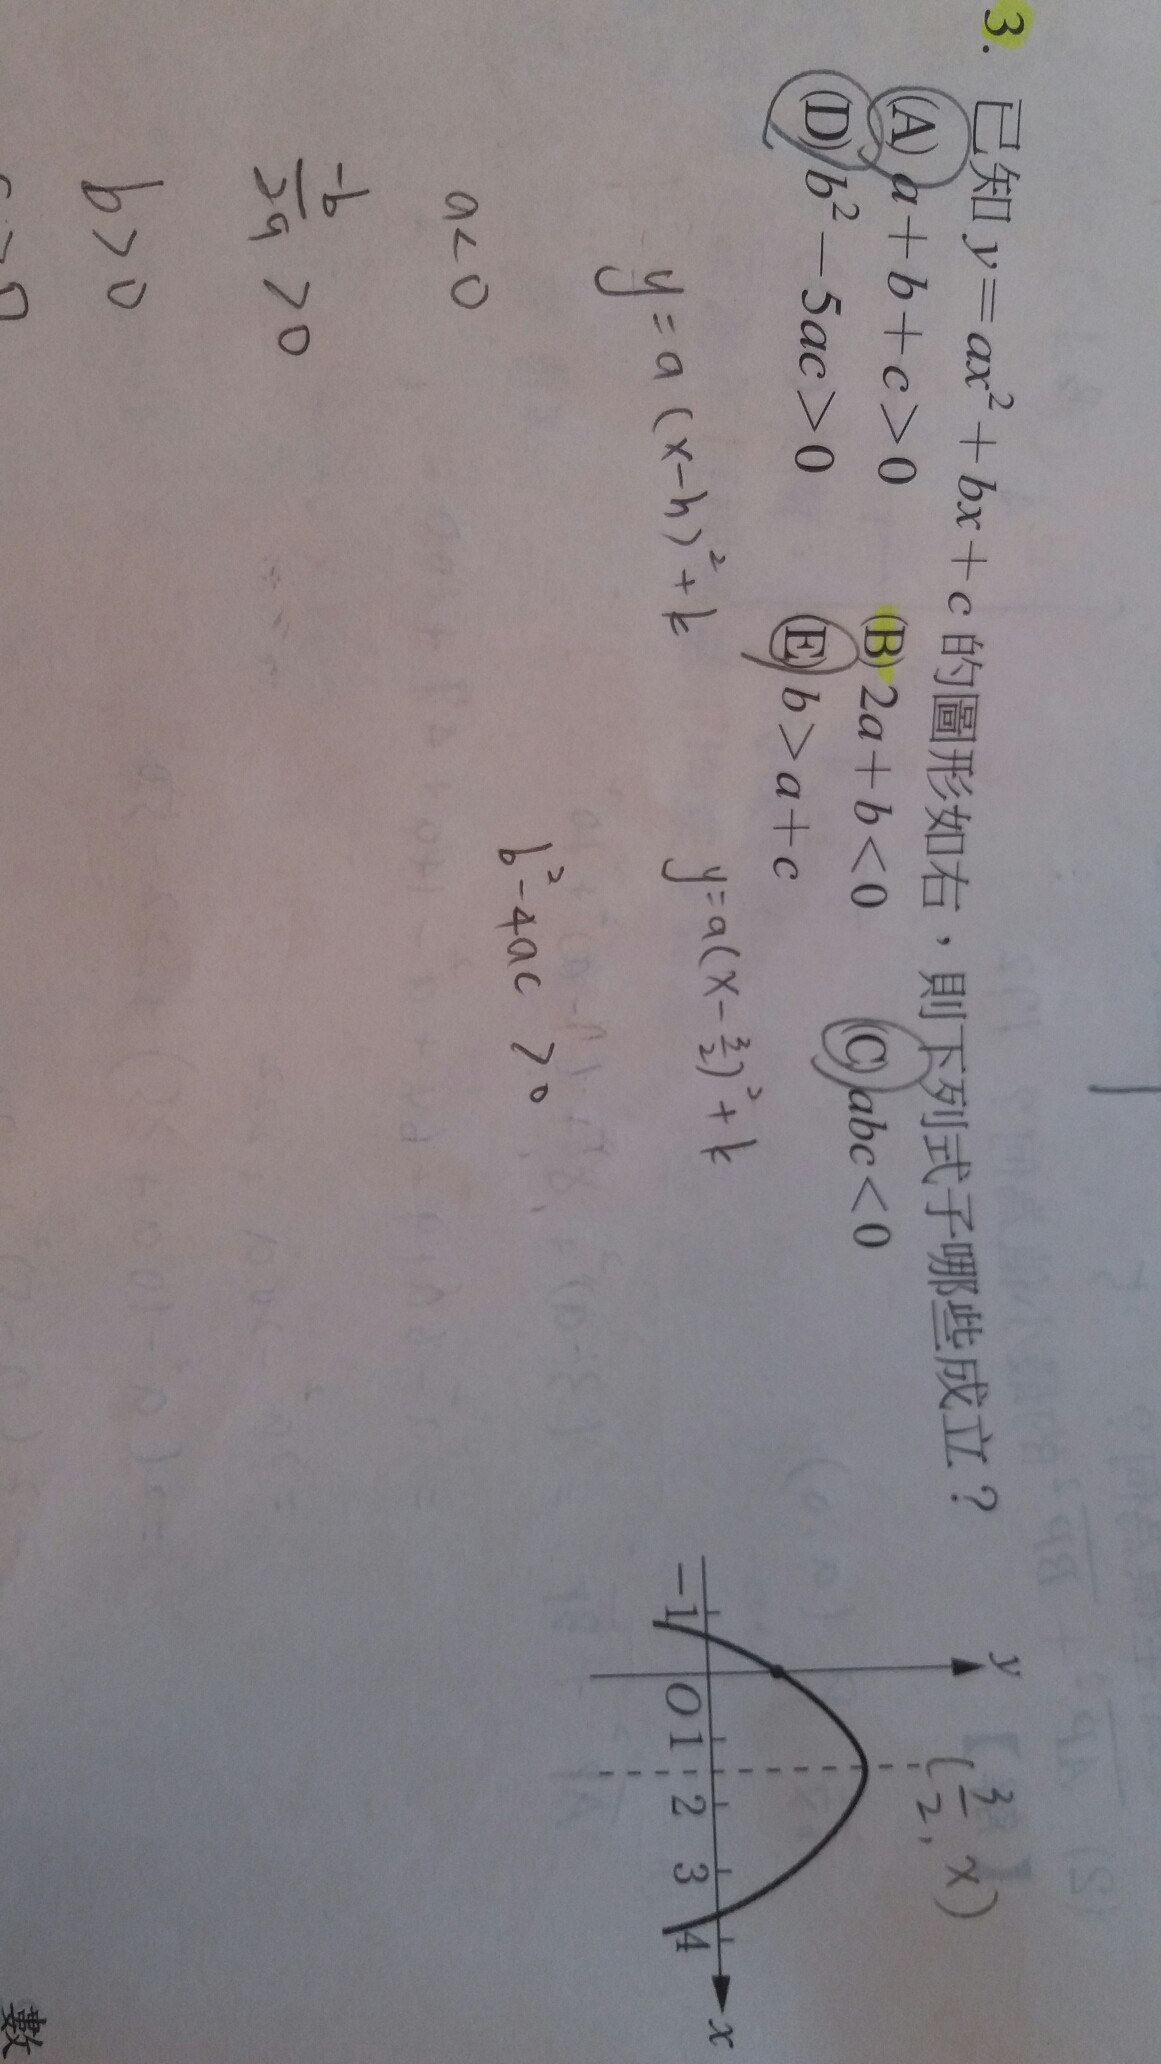 3. 已知 y=ax²+bx+c 的圖形如右，則下列式子哪些成立？
(A) a+b+c>0 (B) 2a+b<0 (C) abc<0
(D) b²−5ac>0 (E) b>a+c
y
(3/2, x)
−1 O 1 2 3 4 x
y=a(x-h)²+k
y=a(x-3/2)²+k
b²-4ac>0
a<0
-b/2a >0
b>0
數